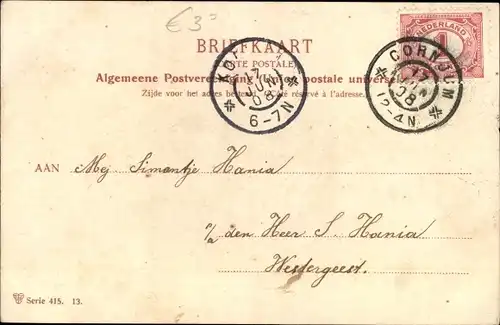 €3=
BRIEFKAART
CARTE POSTALE
Algemeene Postvereeniging (Union postale universelle)
Zijde voor het adres bestemd. Côté réservé à l'adresse.
NEDERLAND
1
CORNJUM
17
08
12-4N
KO
17
JUN
08
6-7N
AAN Mej Simontje Hania
p/a den Heer S. Hania
Westergeest.
Serie 415. 13.